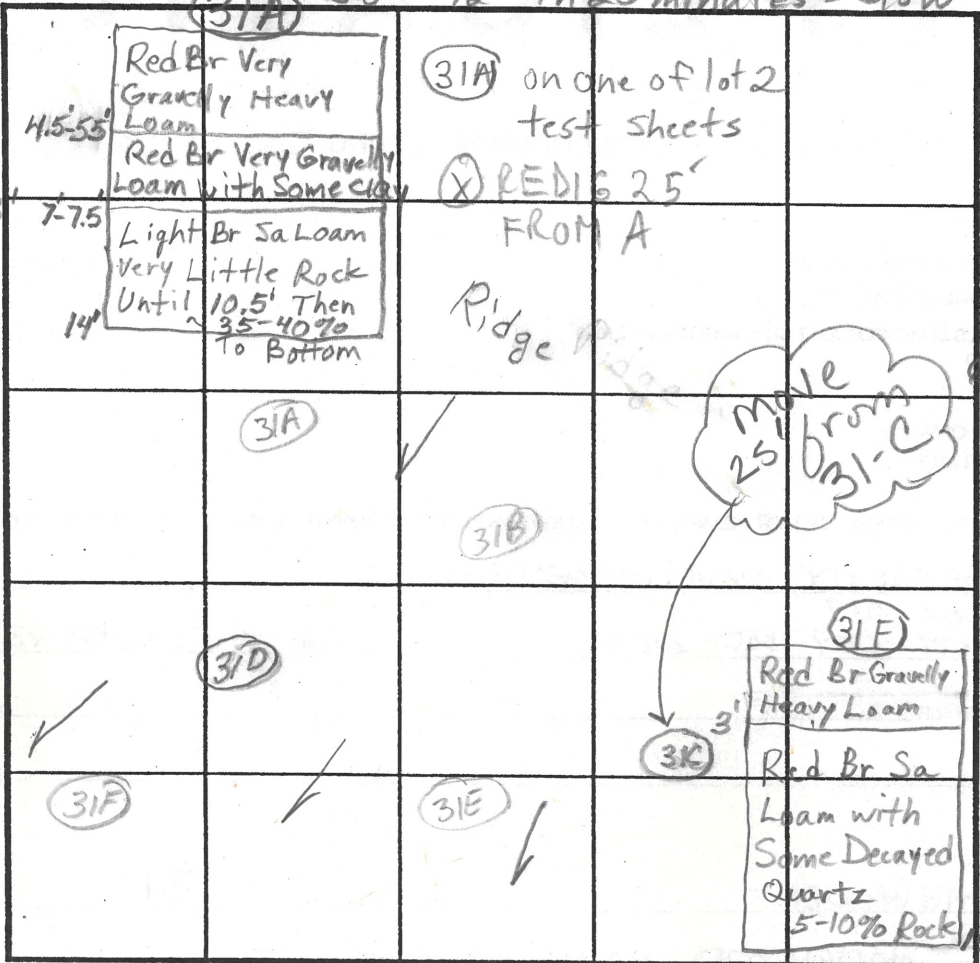 in 20 minutes
31A
Red Br Very
Gravelly Heavy
Loam
4.5'-5.5'
Red Br Very Gravelly
Loam with Some Clay
7-7.5
Light Br Sa Loam
Very Little Rock
Until 10.5' Then
~ 35-40%
14'
To Bottom
31A on one of lot 2
test sheets
X REDIG 25'
FROM A
Ridge
31A
31B
move
25' from
31-C
31D
31C
31F
31E
31E
3'
Red Br Gravelly
Heavy Loam
Red Br Sa
Loam with
Some Decayed
Quartz
5-10% Rock